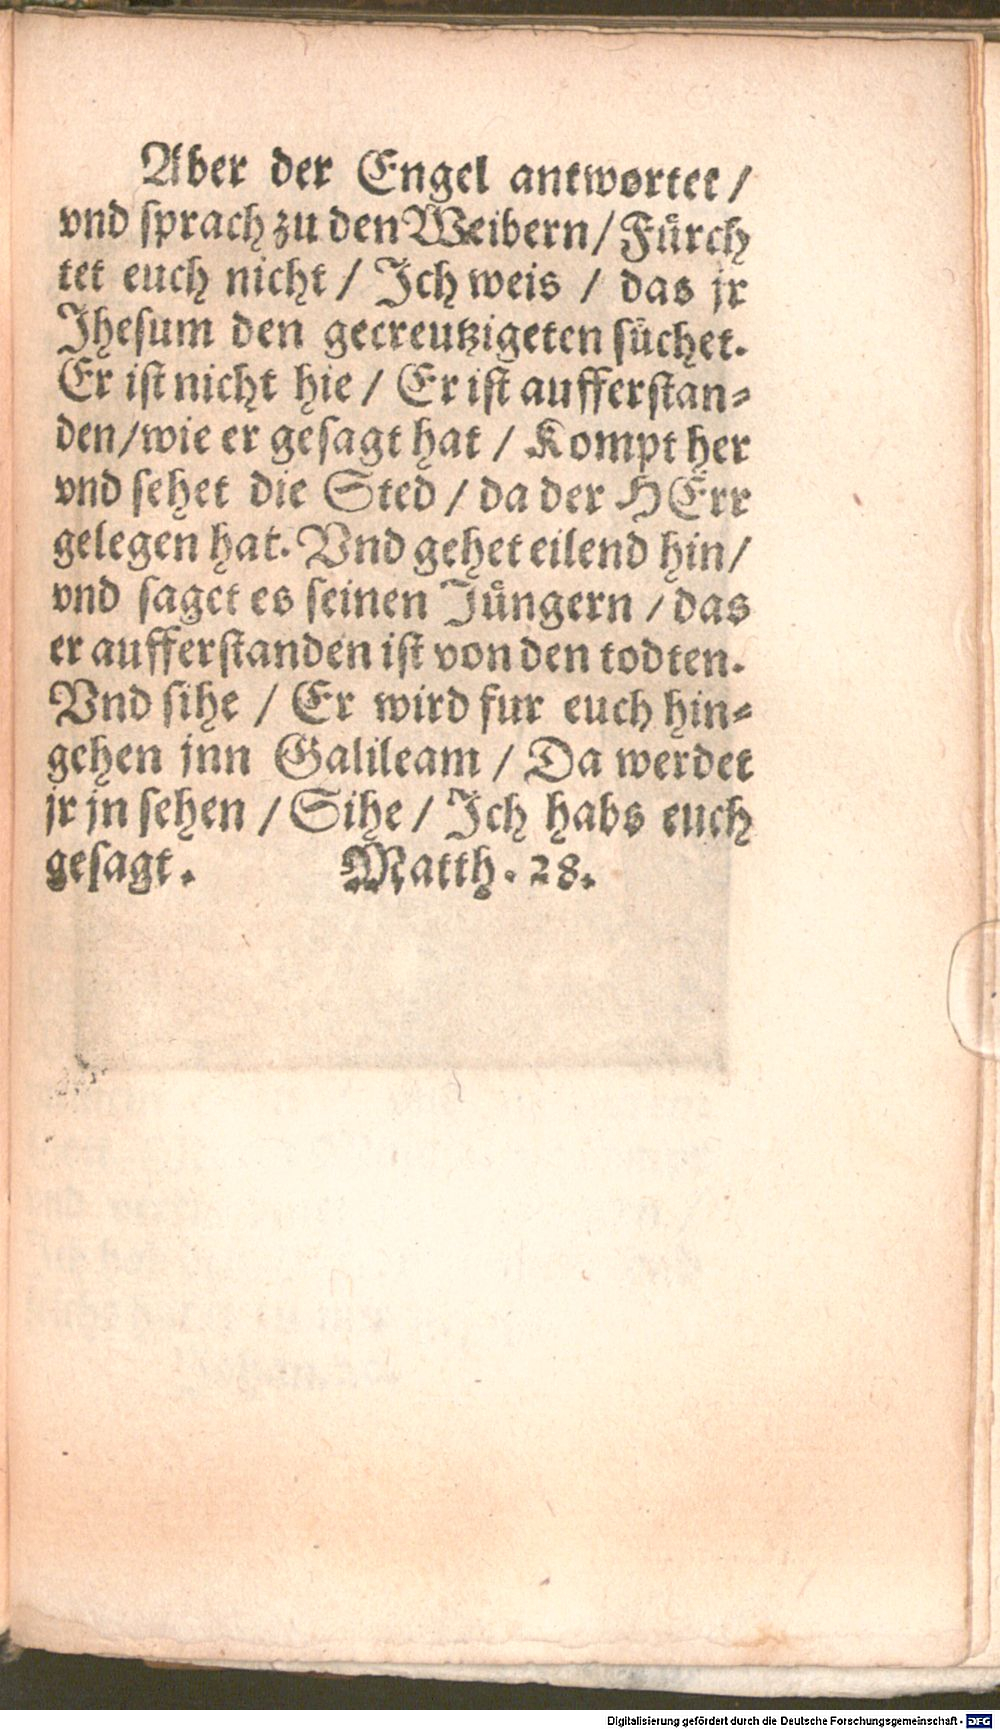 Aber der Engel antwortet /
vnd sprach zu den Weibern / Fürch
tet euch nicht / Ich weis / das jr
Jhesum den gecreutzigeten süchet.
Er ist nicht hie / Er ist aufferstan⸗
den / wie er gesagt hat / Kompt her
vnd sehet die Sted / da der HErr
gelegen hat. Vnd gehet eilend hin /
vnd saget es seinen Jüngern / das
er aufferstanden ist von den todten.
Vnd sihe / Er wird fur euch hin⸗
gehen jnn Galileam / Da werdet
jr jn sehen / Sihe / Ich habs euch
gesagt. Matth. 28.
Digitalisierung gefördert durch die Deutsche Forschungsgemeinschaft - DFG